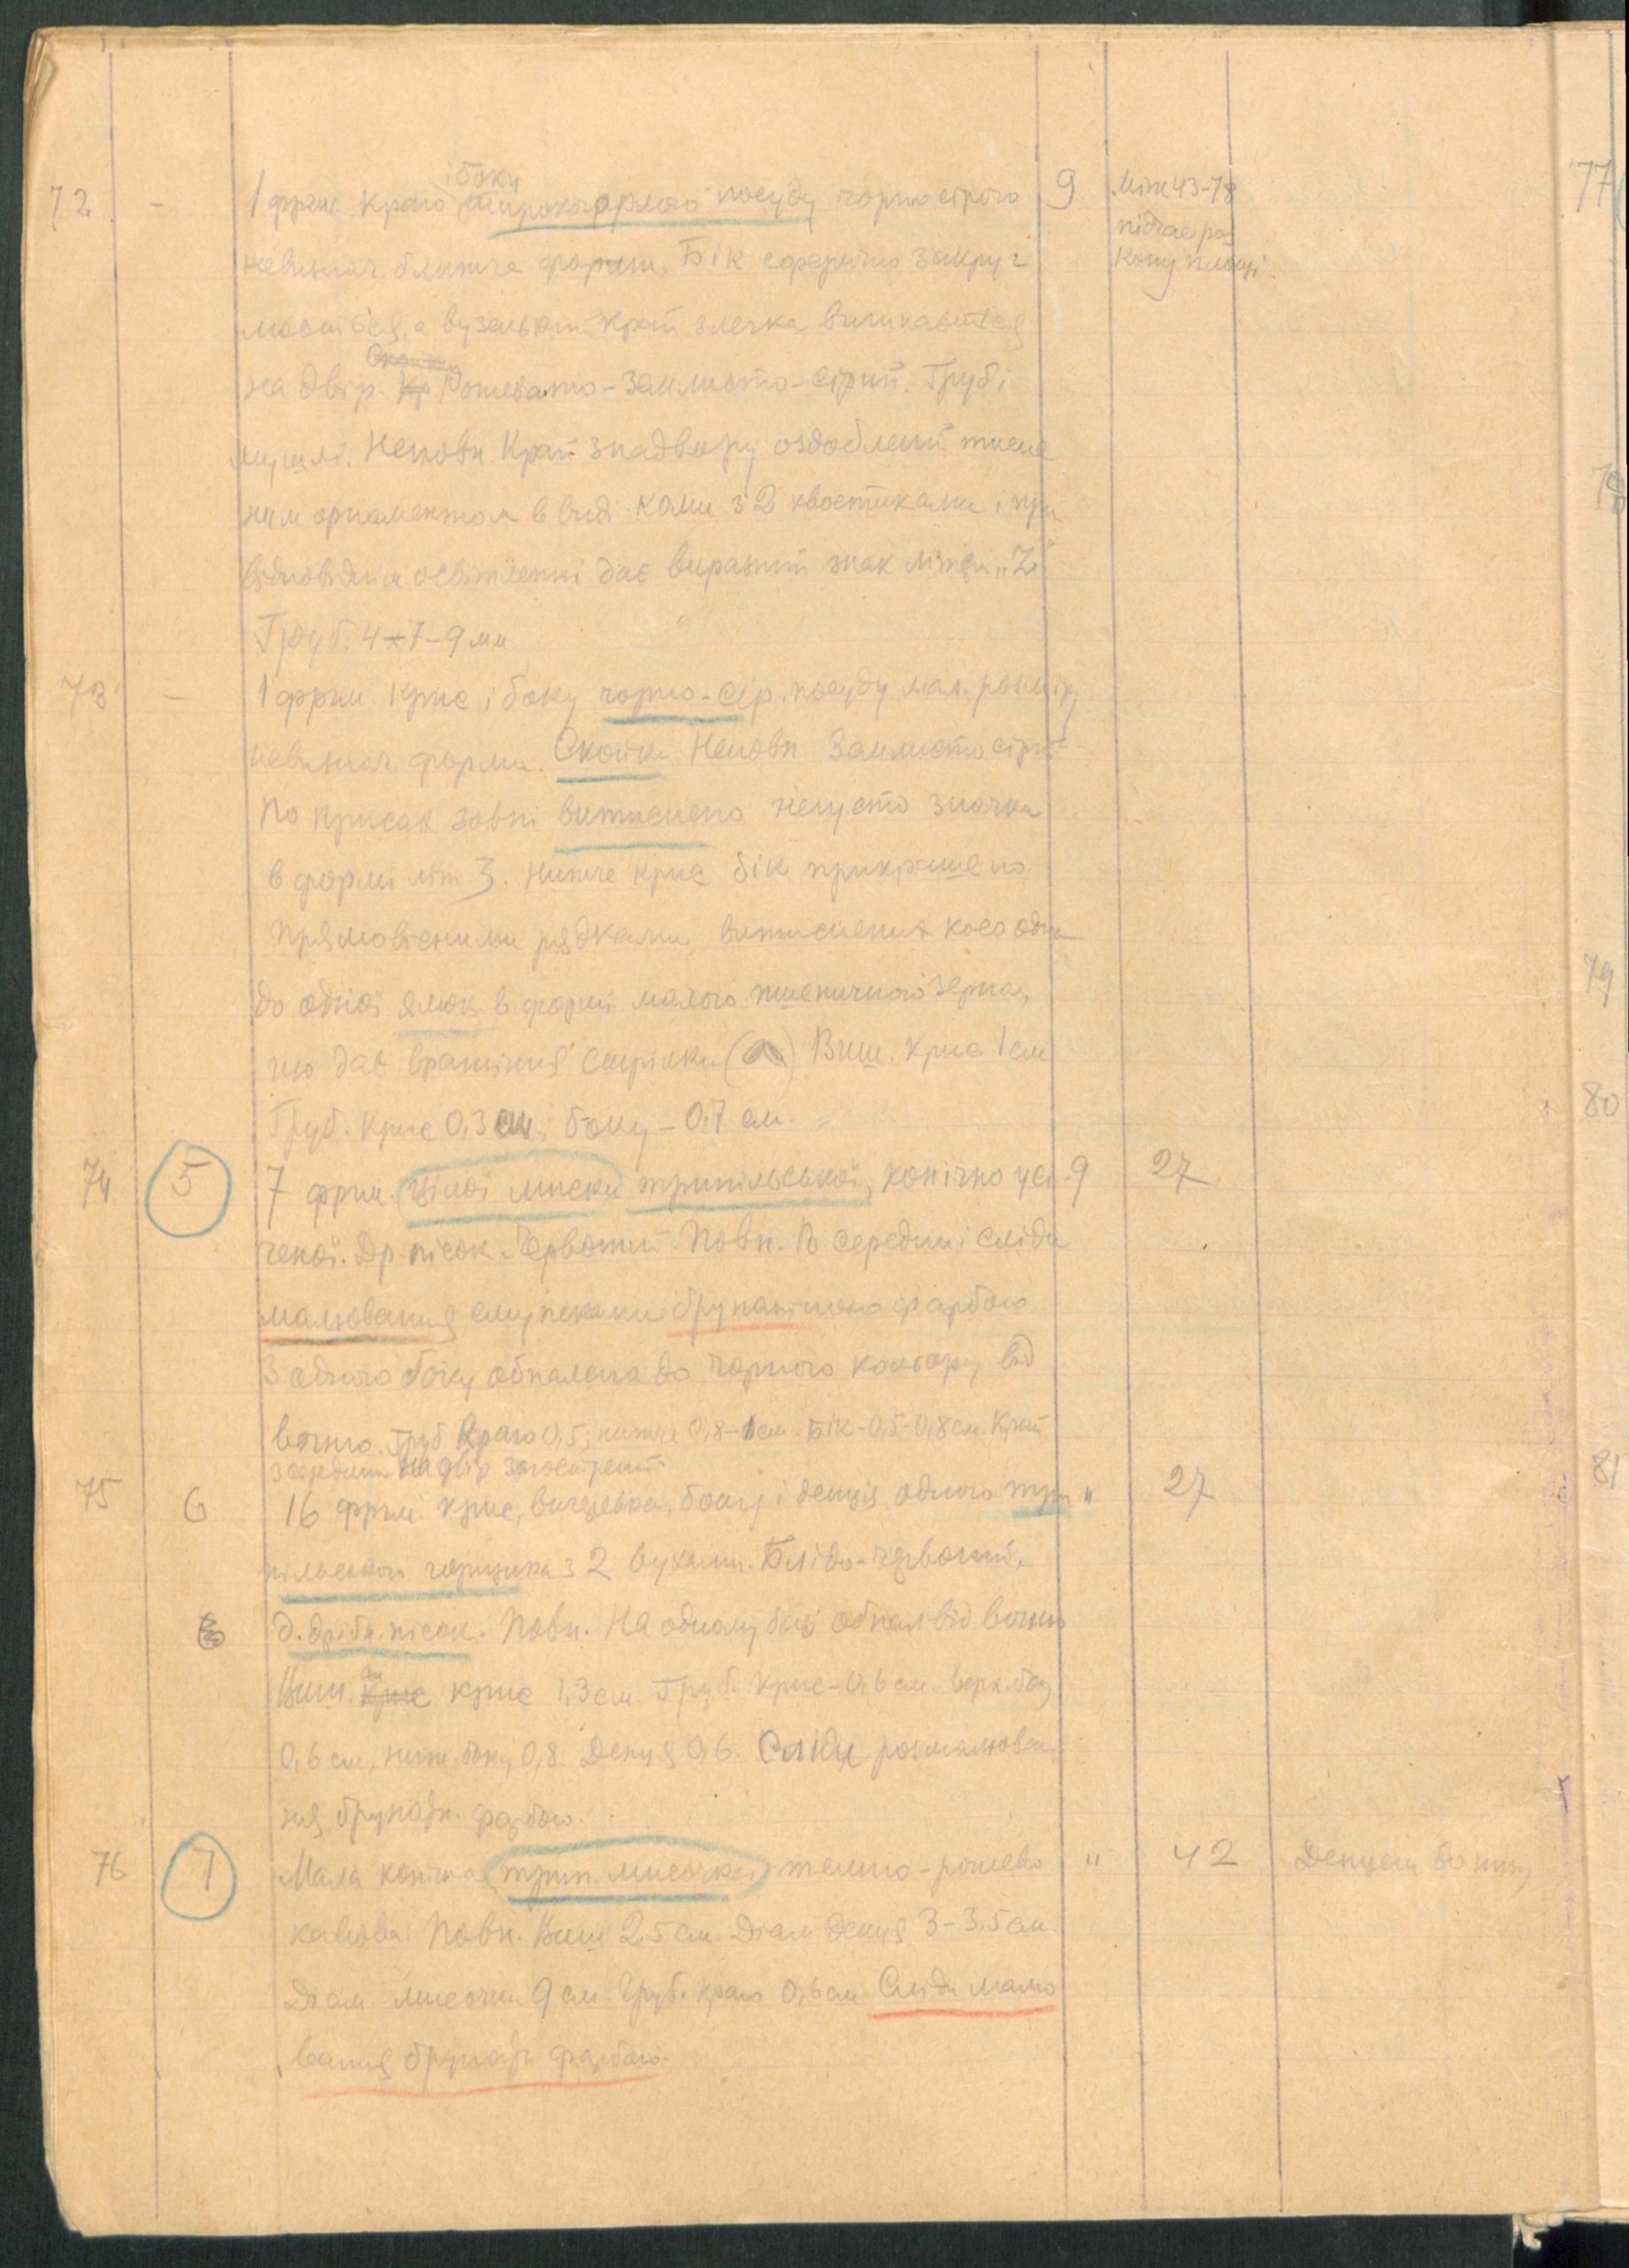 і боку
72 - 1 фрагм. краю широкогорлої посуду чорно сірого 9 Між 43-78
невизнач. ближче форми. Бік сферично закруг підчас роз
люється, а вузький край злегка вигинається копу площі.
на двір. Рожевато-землисто-сірий. Грубі
мушлі. Неповн. Край знадвору оздоблений тисне
ним орнаментом в виді коми з 2 хвостиками і при
відповіднім освітленні дає виразний знак літери „Z"
Груб. 4-7-9 мм
73 - 1 фрагм. крис і боку чорно-сір. посуду мал. розміру
невизнач. форми. Скойки. Неповн. Землисто сірий
По крисах зовні витиснено негусто значки
в формі літ З. Нижче крис бік прикрашено
прямовісними рядками витиснених косо одна
до одної ямок в формі малого пшеничного зерна,
що дає вражіння стрілки ( ) Виш. крис 1 см
Груб. крис 0,3 см і боку - 0,7 см.
74 5 7 фрагм. цілої миски трипільської, конічно усі 9 27
ченої. Др. пісок. Червоний. Повн. В середині сліди
малювання смужками брунатною фарбою
З одного боку обпалена до чорного кольору від
вогню. Груб. краю 0,5; нижче 0,8-1 см. Бік - 0,5-0,8 см. Край
з середини на двір загострений.
75 6 16 фрагм. крис, боку і денця одного три " 27
пільського горщика з 2 вухами. Блідо-червоний,
д. дрібн. пісок. Повн. На одному боці обпал від вогню
Виш. крис 1,3 см. Груб. крис - 0,6 см. верх. боку
0,6 см, ниж. боку 0,8. Денця 0,6. Сліди розмалюван
ня брунатн. фарбою.
76 7 Мала конічна трип. мисочка темно-рожево " 42 Денцем до низу
кавова. Повн. Виш 2,5 см. Діам денця 3-3,5 см.
Діам мисочки 9 см. Груб. краю 0,6 см Сліди малю
вання брунатн фарбою.
77
78
79
80
81